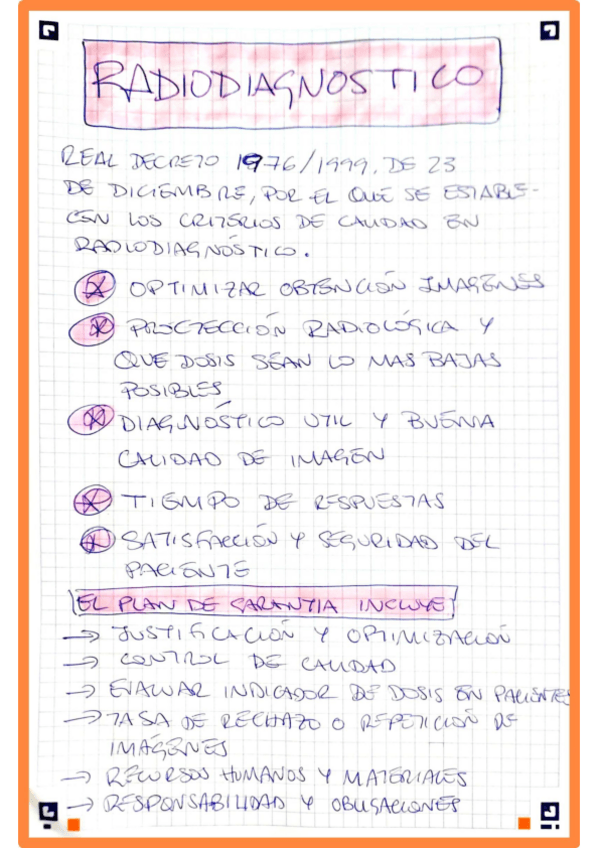 RADIODIAGNOSTICO
REAL DECRETO 1976/1999, DE 23
DE DICIEMBRE, POR EL QUE SE ESTABLE-
CEN LOS CRITERIOS DE CALIDAD EN
RADIODIAGNÓSTICO.
OPTIMIZAR OBTENCIÓN IMAGENES
PROCTECCIÓN RADIOLÓGICA Y
QUE DOSIS SEAN LO MAS BAJAS
POSIBLES
DIAGNÓSTICO UTIL Y BUENA
CALIDAD DE IMAGEN
TIEMPO DE RESPUESTAS
SATISFACCIÓN Y SEGURIDAD DEL
PACIENTE
EL PLAN DE GARANTIA INCLUYE
→ JUSTIFICACIÓN Y OPTIMIZACIÓN
→ CONTROL DE CALIDAD
→ EVALUAR INDICADOR DE DOSIS EN PACIENTES
→ TASA DE RECHAZO O REPETICIÓN DE
IMÁGENES
→ RECURSOS HUMANOS Y MATERIALES
→ RESPONSABILIDAD Y OBLIGACIONES